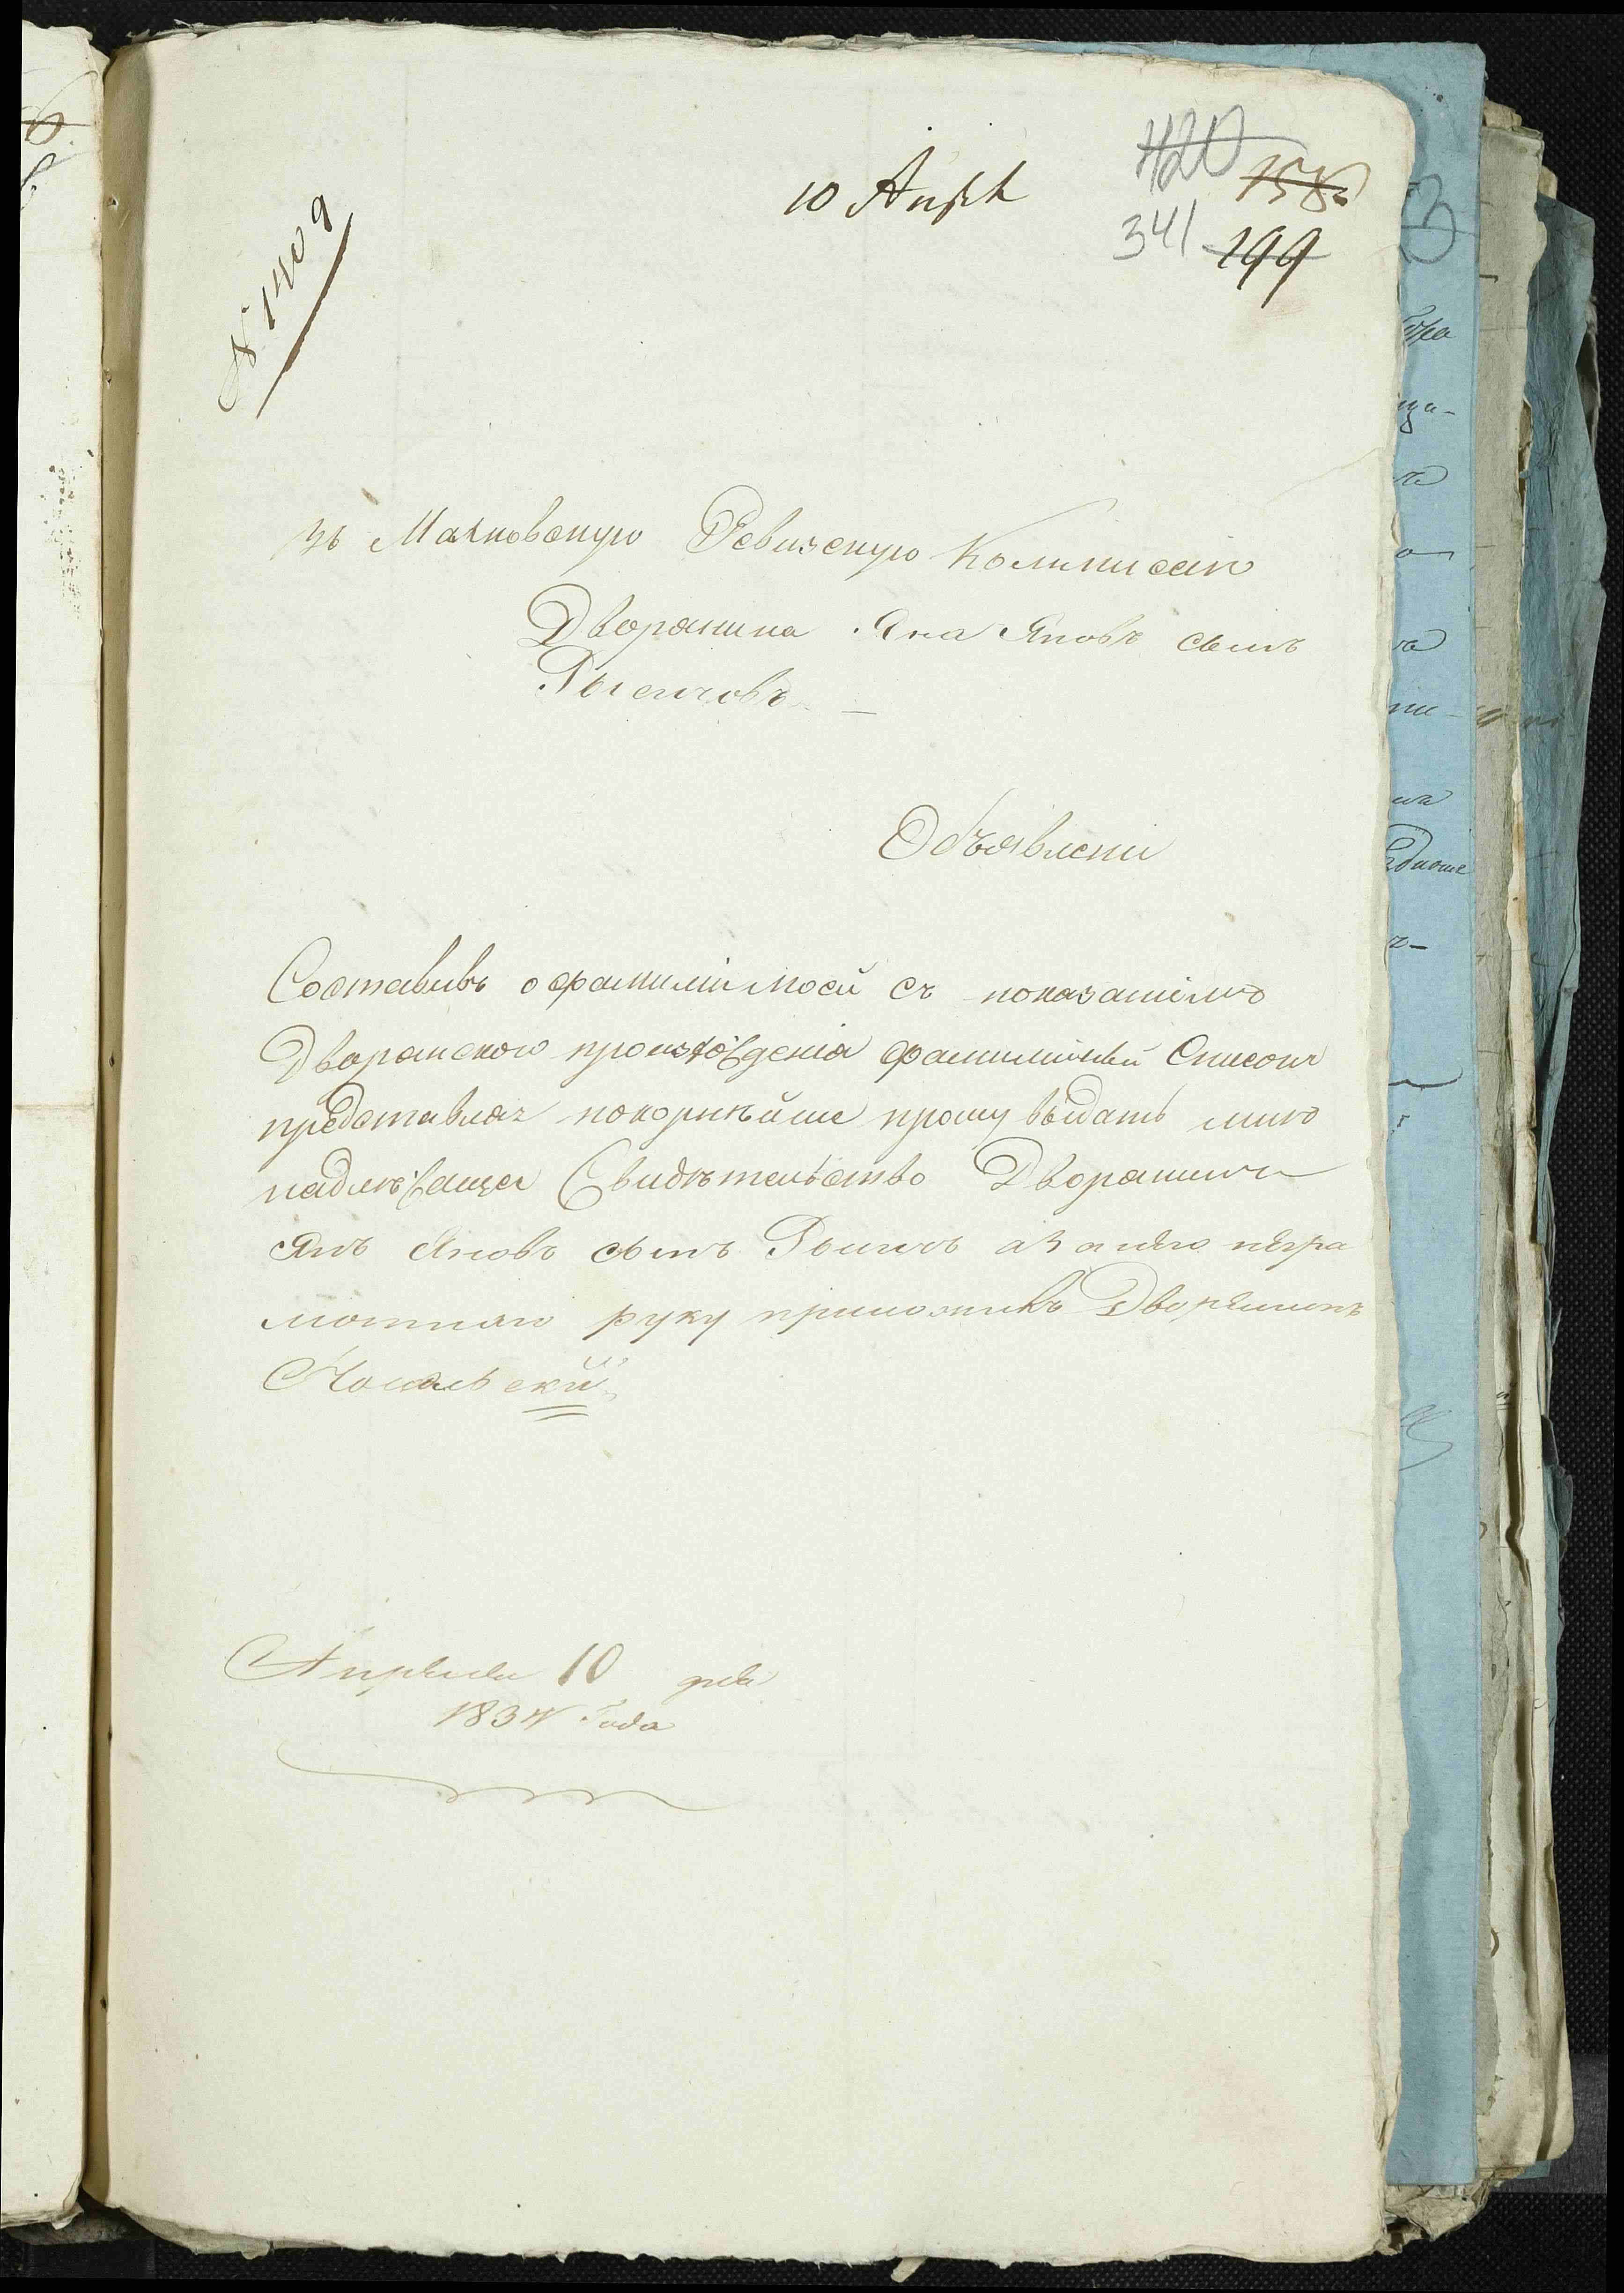 10 Апрѣ
420
158
341 199
№ 1409
въ Махновскую Ревизскую Коммисiю
Дворянина Яна Яновъ сынъ
Объявленiи
Составивъ о фамилiи моей съ показанiемъ
Дворянского происхождения фамилiйный Списокъ
представляя покорнѣйше прошу выдать мнѣ
надлежащея Свидѣтельство Дворянинъ
Янъ Яновъ сынъ а за него негра
мотнаго руку приложивъ Дворянинъ
Апрѣля 10 дня
1834 Года